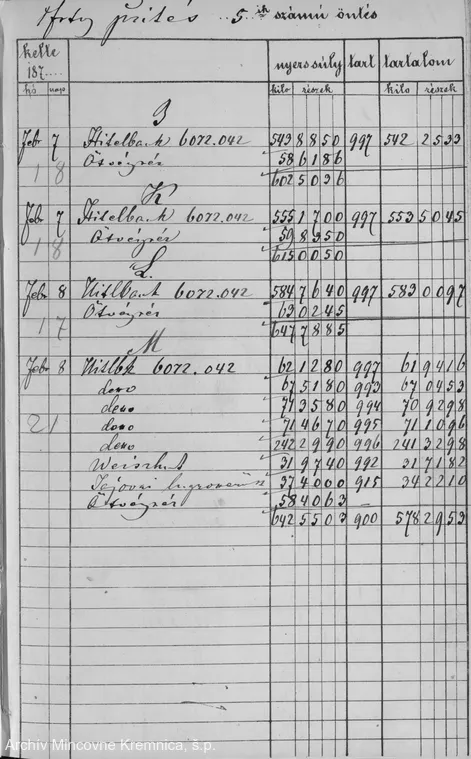 5ik számú öntés
kelte 187 nyers súly tart tartalom
hó nap kilo részek kilo részek
J
Febr 7 Hitelbank 6072.042 543 8850 997 542 2533
18 Ötvégrér 58 6186
602 5036
K
Febr 7 Hitelbank 6072.042 555 1700 997 553 5045
18 Ötvégrér 59 8350
615 0050
L
Febr 8 Hitlbank 6072.042 584 7640 997 583 0097
17 Ötvégrér 63 0245
647 7885
M
Febr 8 Hitlbk 6072.042 62 1280 997 61 9416
detto 67 5180 993 67 0453
detto 71 3580 994 70 9298
21 detto 71 4670 995 71 1096
detto 242 2990 996 241 3298
31 9740 992 31 7182
37 4000 915 34 2210
Ötvégrér 58 4063 –
642 5503 900 578 2953
Archív Mincovne Kremnica, š.p.